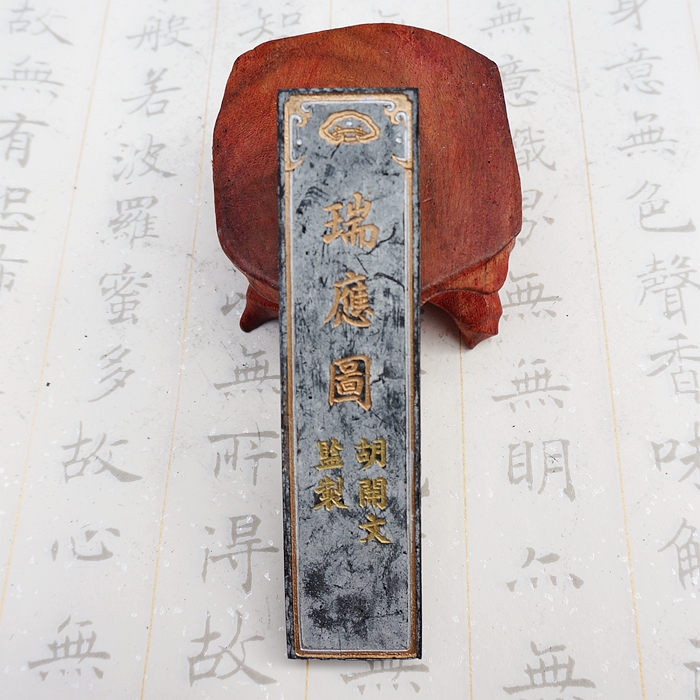 瑞應圖
胡開文
監製
身意無色聲香味觸
無意識界無無明亦無
知
無所得故
般若波羅蜜多故心無
故無有恐怖